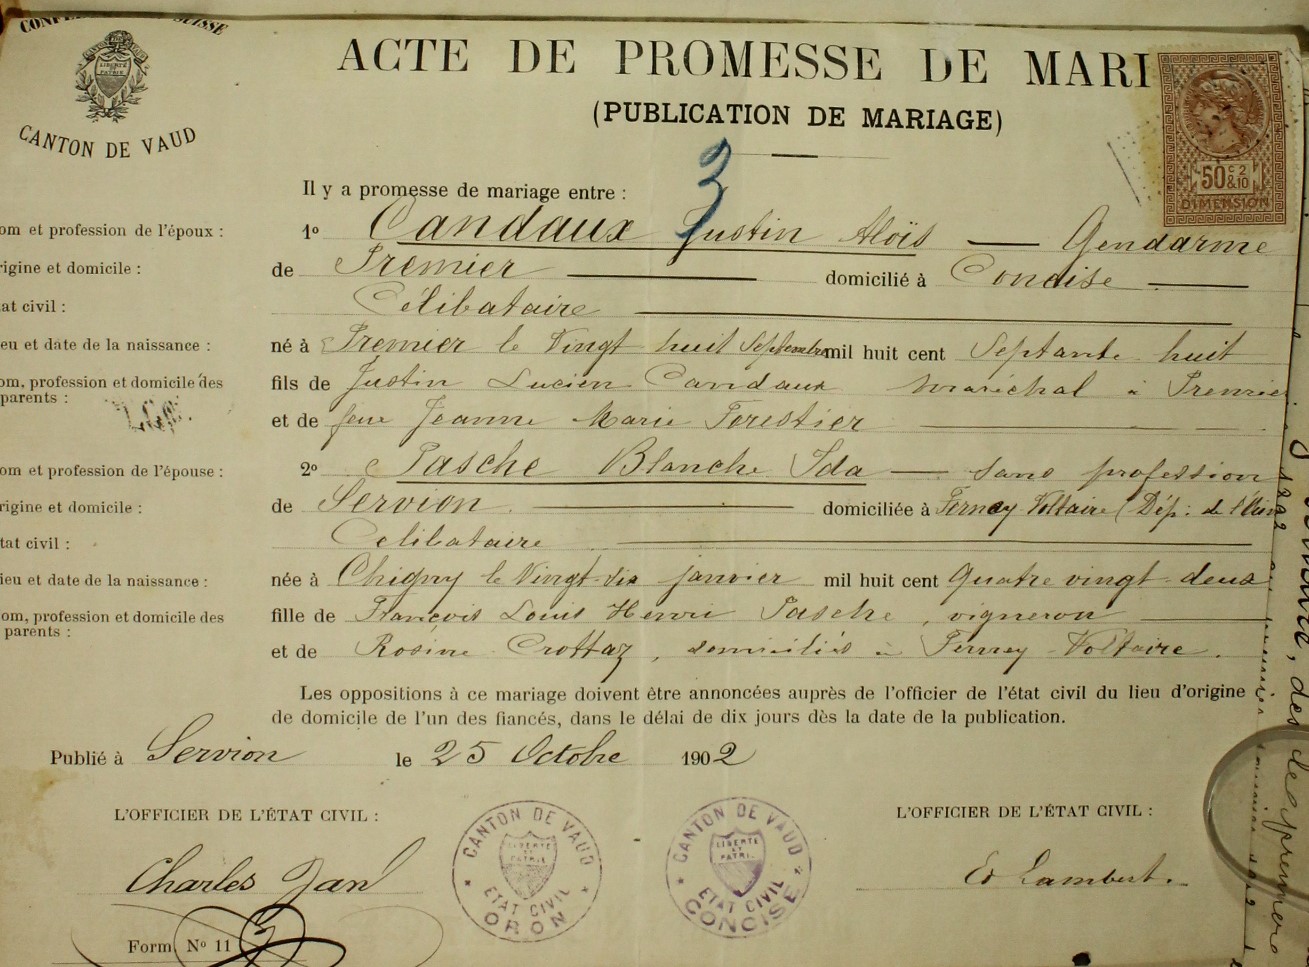 CANTON DE VAUD
LIBERTÉ ET PATRIE
ACTE DE PROMESSE DE MARI
(PUBLICATION DE MARIAGE)
50 c 2 & 10
DIMENSION
3
Il y a promesse de mariage entre :
om et profession de l'époux : 1º Candaux Justin Aloïs — Gendarme
rigine et domicile : de Premier — domicilié à Concise —
tat civil : Célibataire —
eu et date de la naissance : né à Premier le Vingt huit Septembre mil huit cent Septante huit
om, profession et domicile des parents : fils de Justin Lucien Candaux maréchal à Premier
et de feue Jeanne Marie Forestier —
om et profession de l'épouse : 2º Pasche Blanche Ida — sans profession
rigine et domicile : de Servion — domiciliée à Ferney Voltaire (Dép. de l'Ain
tat civil : Célibataire —
ieu et date de la naissance : née à Chigny le Vingt-six janvier mil huit cent Quatre vingt-deux
om, profession et domicile des parents : fille de François Louis Henri Pasche, vigneron —
et de Rosine Crottaz, domiciliés à Ferney-Voltaire.
Les oppositions à ce mariage doivent être annoncées auprès de l'officier de l'état civil du lieu d'origine
de domicile de l'un des fiancés, dans le délai de dix jours dès la date de la publication.
Publié à Servion le 25 Octobre 1902
L'OFFICIER DE L'ÉTAT CIVIL : L'OFFICIER DE L'ÉTAT CIVIL :
CANTON DE VAUD LIBERTÉ ET PATRIE ETAT CIVIL ORON
CANTON DE VAUD LIBERTE ET PATRIE ETAT CIVIL CONCISE
Charles Ed Lambert.
Form. Nº 11